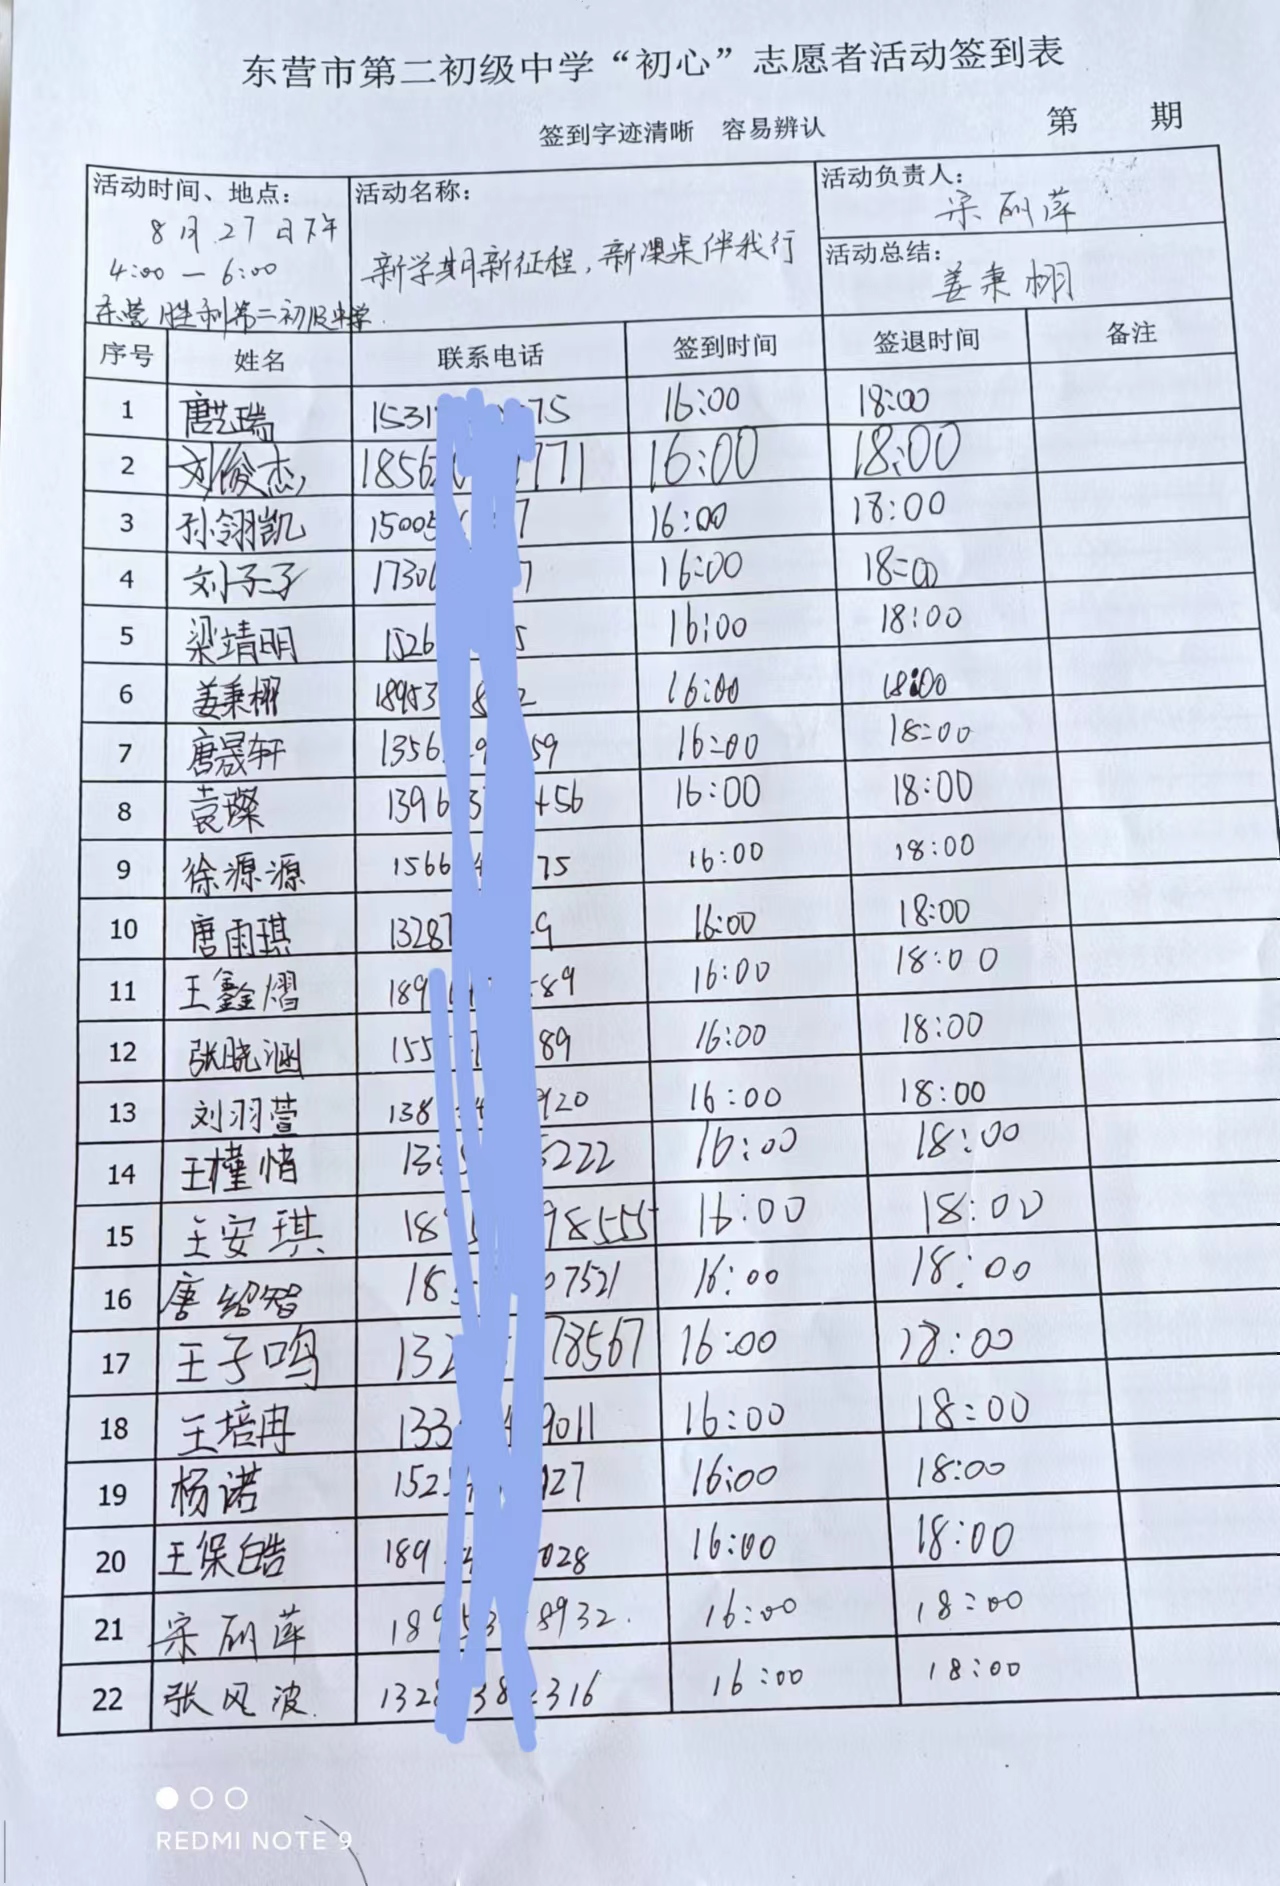 东营市第二初级中学“初心”志愿者活动签到表
签到字迹清晰 容易辨认
第 期
活动时间、地点：
8月27日下午
4:00 — 6:00
东营胜利第二初级中学
活动名称：
新学期新征程，新课桌伴我行
活动负责人：
宋丽萍
活动总结：
姜秉栩
序号 姓名 联系电话 签到时间 签退时间 备注
1 唐艺瑞 1531 75 16:00 18:00
2 刘俊杰 1856 711 16:00 18:00
3 孙翎凯 15005 7 16:00 18:00
4 刘子子 1730 7 16:00 18:00
5 梁靖明 1526 5 16:00 18:00
6 姜秉栩 18953 8 2 16:00 18:00
7 唐晟轩 1356 9 59 16:00 18:00
8 袁璨 1396 3 456 16:00 18:00
9 徐源源 1566 75 16:00 18:00
10 唐雨琪 1328 9 16:00 18:00
11 王鑫熠 189 89 16:00 18:00
12 张晓涵 155 89 16:00 18:00
13 刘羽萱 138 920 16:00 18:00
14 王槿惰 13 5222 16:00 18:00
15 王安琪 18 98555 16:00 18:00
16 唐绍智 18 7521 16:00 18:00
17 王子鸣 132 78567 16:00 18:00
18 王培冉 133 9011 16:00 18:00
19 杨诺 152 927 16:00 18:00
20 王保皓 189 028 16:00 18:00
21 宋丽萍 18 53 8932 16:00 18:00
22 张风波 132 38 316 16:00 18:00
REDMI NOTE 9